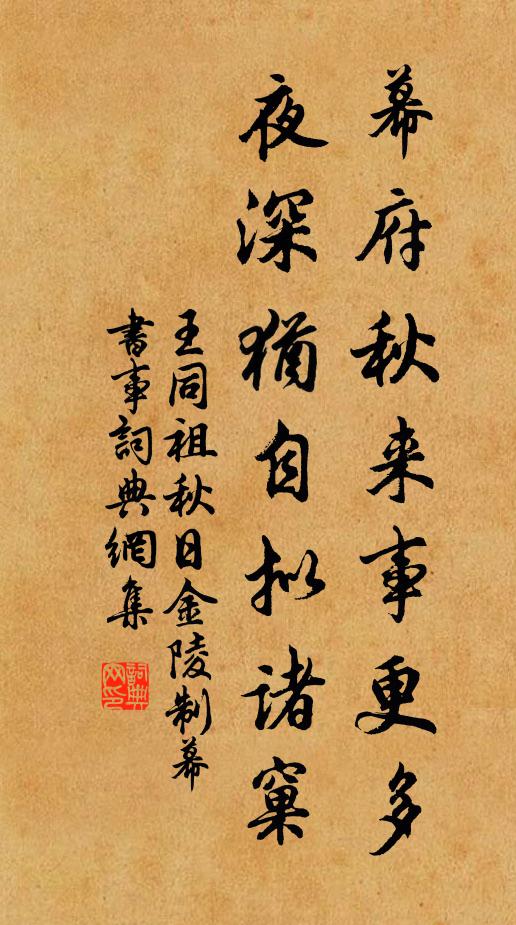 幕府秋来事更多
夜深猶自拟诸窠
王同祖秋日金陵制幕
書事詞典網集
詞典网印